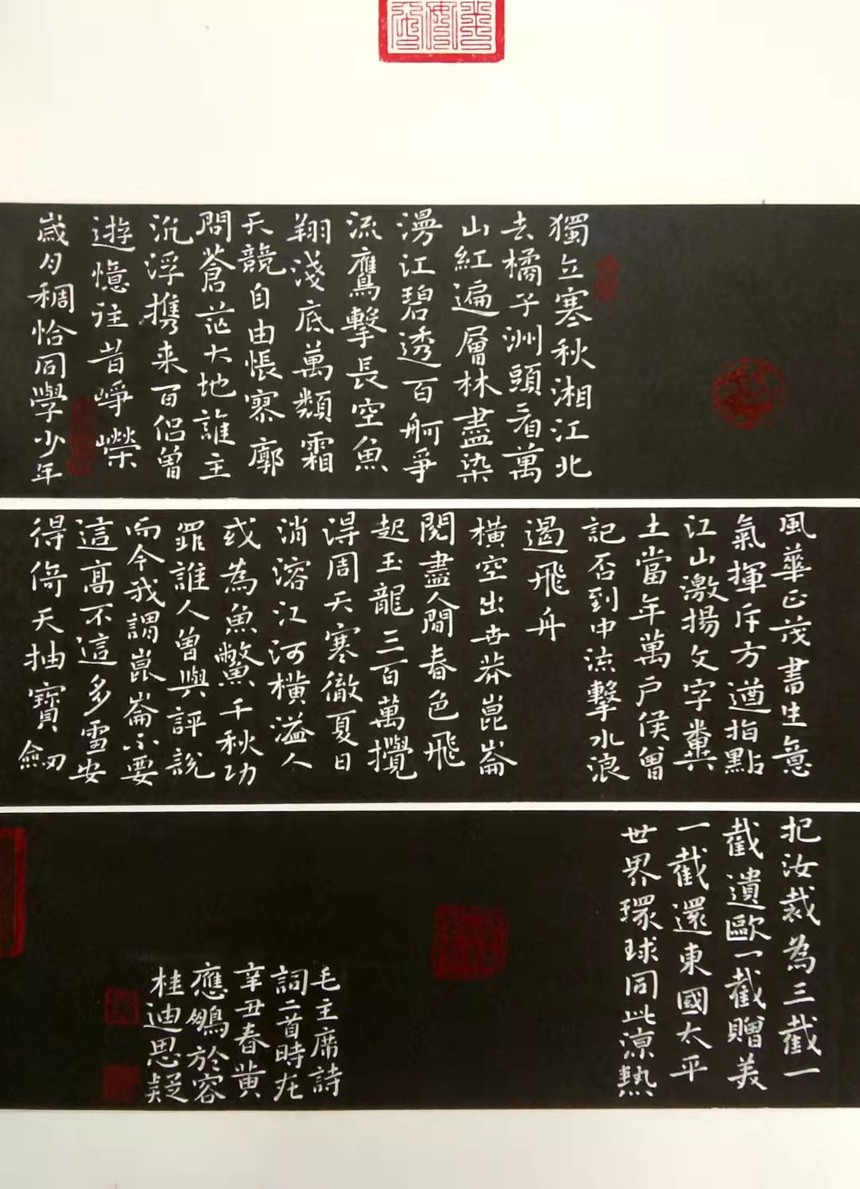 獨立寒秋湘江北
去橘子洲頭看萬
山紅遍層林盡染
漫江碧透百舸爭
流鷹擊長空魚
翔淺底萬類霜
天競自由悵寥廓
問蒼茫大地誰主
沉浮携来百侣曾
遊憶往昔崢嶸
歲月稠恰同學少年
風華正茂書生意
氣揮斥方遒指點
江山激揚文字糞
土當年萬户侯曾
記否到中流擊水浪
遏飛舟
橫空出世莽崑崙
閱盡人間春色飛
起玉龍三百萬攪
得周天寒徹夏日
消溶江河橫溢人
或為魚鱉千秋功
罪誰人曾與評說
而今我謂崑崙不要
這高不這多雪安
得倚天抽寶劒
把汝裁為三截一
截遺歐一截贈美
一截還東國太平
世界環球同此凉熱
毛主席詩
詞二首時在
辛丑春黄
應鵬於容
桂迪思疑